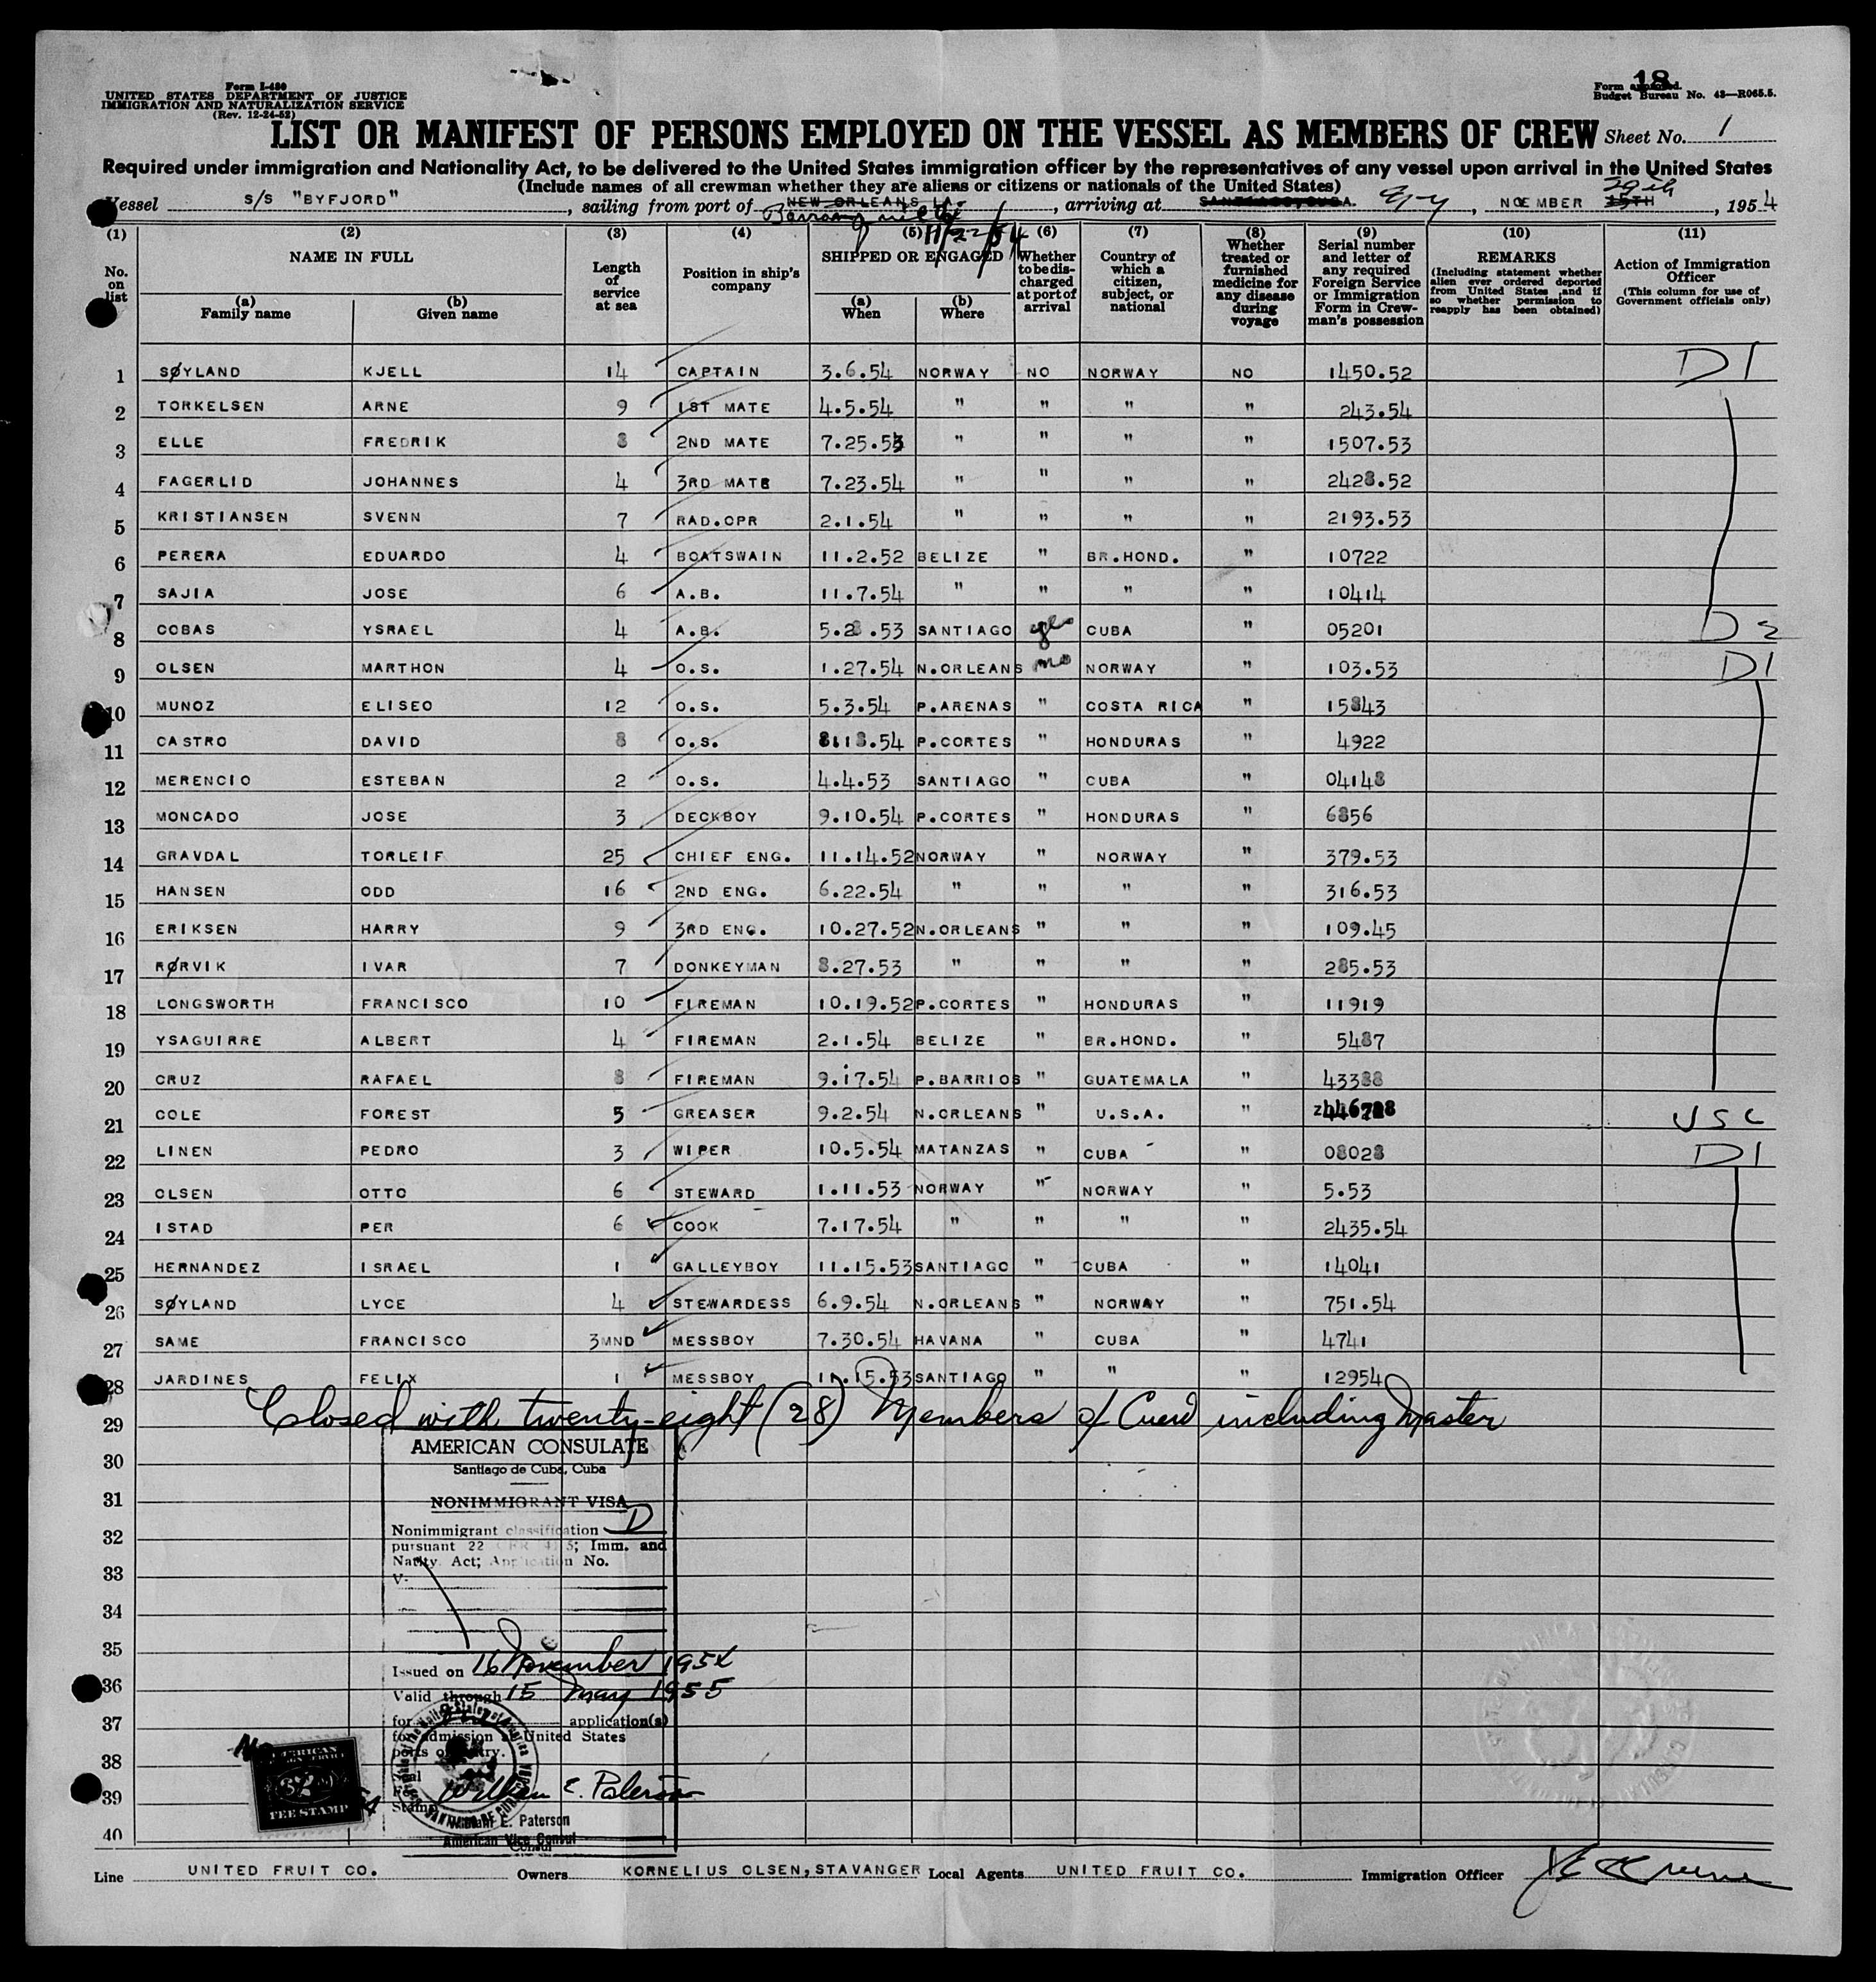 Form I-480
UNITED STATES DEPARTMENT OF JUSTICE
IMMIGRATION AND NATURALIZATION SERVICE
(Rev. 12-24-52)
18
Form approved.
Budget Bureau No. 43—R065.5.
LIST OR MANIFEST OF PERSONS EMPLOYED ON THE VESSEL AS MEMBERS OF CREW Sheet No. 1
Required under immigration and Nationality Act, to be delivered to the United States immigration officer by the representatives of any vessel upon arrival in the United States
(Include names of all crewman whether they are aliens or citizens or nationals of the United States)
29th
Vessel S/S "BYFJORD", sailing from port of NEW ORLEANS LA., arriving at SANTIAGO, CUBA., NOEMBER 15TH, 1954
11/22/54
(1) (2) (3) (4) (5) (6) (7) (8) (9) (10) (11)
No. on list
NAME IN FULL
(a) Family name
(b) Given name
Length of service at sea
Position in ship's company
SHIPPED OR ENGAGED
(a) When
(b) Where
Whether to be discharged at port of arrival
Country of which a citizen, subject, or national
Whether treated or furnished medicine for any disease during voyage
Serial number and letter of any required Foreign Service or Immigration Form in Crewman's possession
REMARKS
(Including statement whether alien ever ordered deported from United States ,and if so whether permission to reapply has been obtained)
Action of Immigration Officer
(This column for use of Government officials only)
1 SØYLAND KJELL 14 CAPTAIN 3.6.54 NORWAY NO NORWAY NO 1450.52 D1
2 TORKELSEN ARNE 9 1ST MATE 4.5.54 " " " " 243.54
3 ELLE FREDRIK 8 2ND MATE 7.25.53 " " " " 1507.53
4 FAGERLID JOHANNES 4 3RD MATE 7.23.54 " " " " 2428.52
5 KRISTIANSEN SVENN 7 RAD.OPR 2.1.54 " " " " 2193.53
6 PERERA EDUARDO 4 BOATSWAIN 11.2.52 BELIZE " BR.HOND. " 10722
7 SAJIA JOSE 6 A.B. 11.7.54 " " " " 10414
8 COBAS YSRAEL 4 A.B. 5.28.53 SANTIAGO yes CUBA " 05201 D2
9 OLSEN MARTHON 4 O.S. 1.27.54 N.ORLEANS no NORWAY " 103.53 D1
10 MUNOZ ELISEO 12 O.S. 5.3.54 P.ARENAS " COSTA RICA " 15843
11 CASTRO DAVID 8 O.S. 8.18.54 P.CORTES " HONDURAS " 4922
12 MERENCIO ESTEBAN 2 O.S. 4.4.53 SANTIAGO " CUBA " 04148
13 MONCADO JOSE 3 DECKBOY 9.10.54 P.CORTES " HONDURAS " 6856
14 GRAVDAL TORLEIF 25 CHIEF ENG. 11.14.52 NORWAY " NORWAY " 379.53
15 HANSEN ODD 16 2ND ENG. 6.22.54 " " " " 316.53
16 ERIKSEN HARRY 9 3RD ENG. 10.27.52 N.ORLEANS " " " 109.45
17 RØRVIK IVAR 7 DONKEYMAN 8.27.53 " " " " 285.53
18 LONGSWORTH FRANCISCO 10 FIREMAN 10.19.52 P.CORTES " HONDURAS " 11919
19 YSAGUIRRE ALBERT 4 FIREMAN 2.1.54 BELIZE " BR.HOND. " 5487
20 CRUZ RAFAEL 8 FIREMAN 9.17.54 P.BARRIOS " GUATEMALA " 43388
21 COLE FOREST 5 GREASER 9.2.54 N.ORLEANS " U.S.A. " USC
22 LINEN PEDRO 3 WIPER 10.5.54 MATANZAS " CUBA " 08028 D1
23 OLSEN OTTO 6 STEWARD 1.11.53 NORWAY " NORWAY " 5.53
24 ISTAD PER 6 COOK 7.17.54 " " " " 2435.54
25 HERNANDEZ ISRAEL 1 GALLEYBOY 11.15.53 SANTIAGO " CUBA " 14041
26 SØYLAND LYCE 4 STEWARDESS 6.9.54 N.ORLEANS " NORWAY " 751.54
27 SAME FRANCISCO 3MND MESSBOY 7.30.54 HAVANA " CUBA " 4741
28 JARDINES FELIX 1 MESSBOY 11.15.53 SANTIAGO " " " 12954
29 Closed with twenty-eight (28) Members of Crew including Master
30
31
32
33
34
35
36
37
38
39
40
AMERICAN CONSULATE
Santiago de Cuba, Cuba
NONIMMIGRANT VISA
Nonimmigrant classification D
pursuant 22 CFR 41.5; Imm. and
Natly. Act; Application No.
V-
Issued on 16 November 1954
Valid through 15 May 1955
for application(s)
for admission at United States
ports of entry.
William E. Paterson
William E. Paterson
American Vice Consul
FEE STAMP
Line UNITED FRUIT CO. Owners KORNELIUS OLSEN, STAVANGER Local Agents UNITED FRUIT CO. Immigration Officer